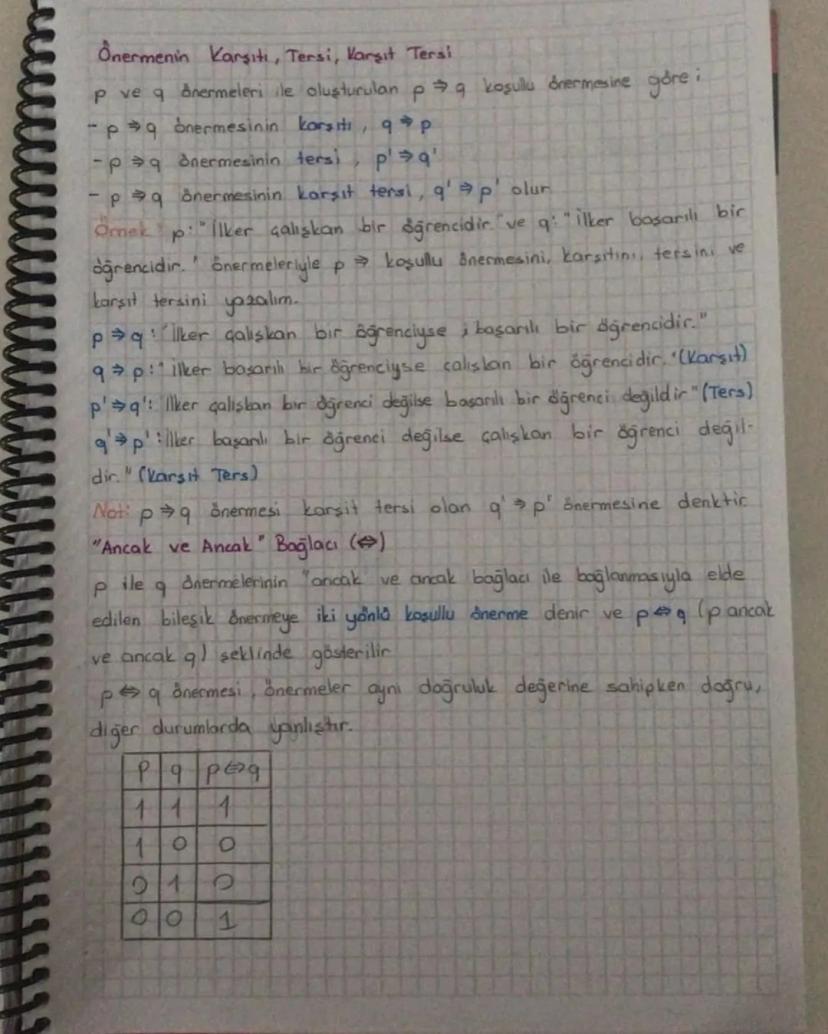 Önermenin Karşıtı, Tersi, Karşıt Tersi
p ve q önermeleri ile oluşturulan p ⇒ q koşullu önermesine göre;
- p ⇒ q önermesinin karşıtı, q ⇒ p
- p ⇒ q önermesinin tersi, p' ⇒ q'
- p ⇒ q önermesinin karşıt tersi, q' ⇒ p' olur
Örnek: p: "İlker çalışkan bir öğrencidir." ve q: "ilker başarılı bir
öğrencidir." önermeleriyle p ⇒ koşullu önermesini, karşıtını, tersini ve
karşıt tersini yazalım.
p ⇒ q: "İlker çalışkan bir öğrenciyse, başarılı bir öğrencidir."
q ⇒ p: "ilker başarılı bir öğrenciyse çalışkan bir öğrencidir." (Karşıt)
p' ⇒ q': İlker çalışkan bir öğrenci değilse başarılı bir öğrenci değildir" (Ters)
q' ⇒ p': İlker başarılı bir öğrenci değilse çalışkan bir öğrenci değil-
dir." (Karşıt Ters)
Not: p ⇒ q önermesi karşıt tersi olan q' ⇒ p' önermesine denktir
"Ancak ve Ancak" Bağlacı (⇔)
p ile q önermelerinin "ancak ve ancak bağlacı ile bağlanmasıyla elde
edilen bileşik önermeye iki yönlü koşullu önerme denir ve p ⇔ q (p ancak
ve ancak q) şeklinde gösterilir
p ⇔ q önermesi, önermeler aynı doğruluk değerine sahipken doğru,
diğer durumlarda yanlıştır.
p q p⇔q
1 1 1
1 0 0
0 1 0
0 0 1